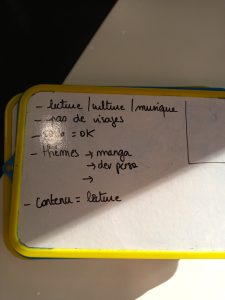 - lecture / culture / musique
- pas de visages
- = OK
- thèmes → manga
→ dev perso
→
- contenu = lecture